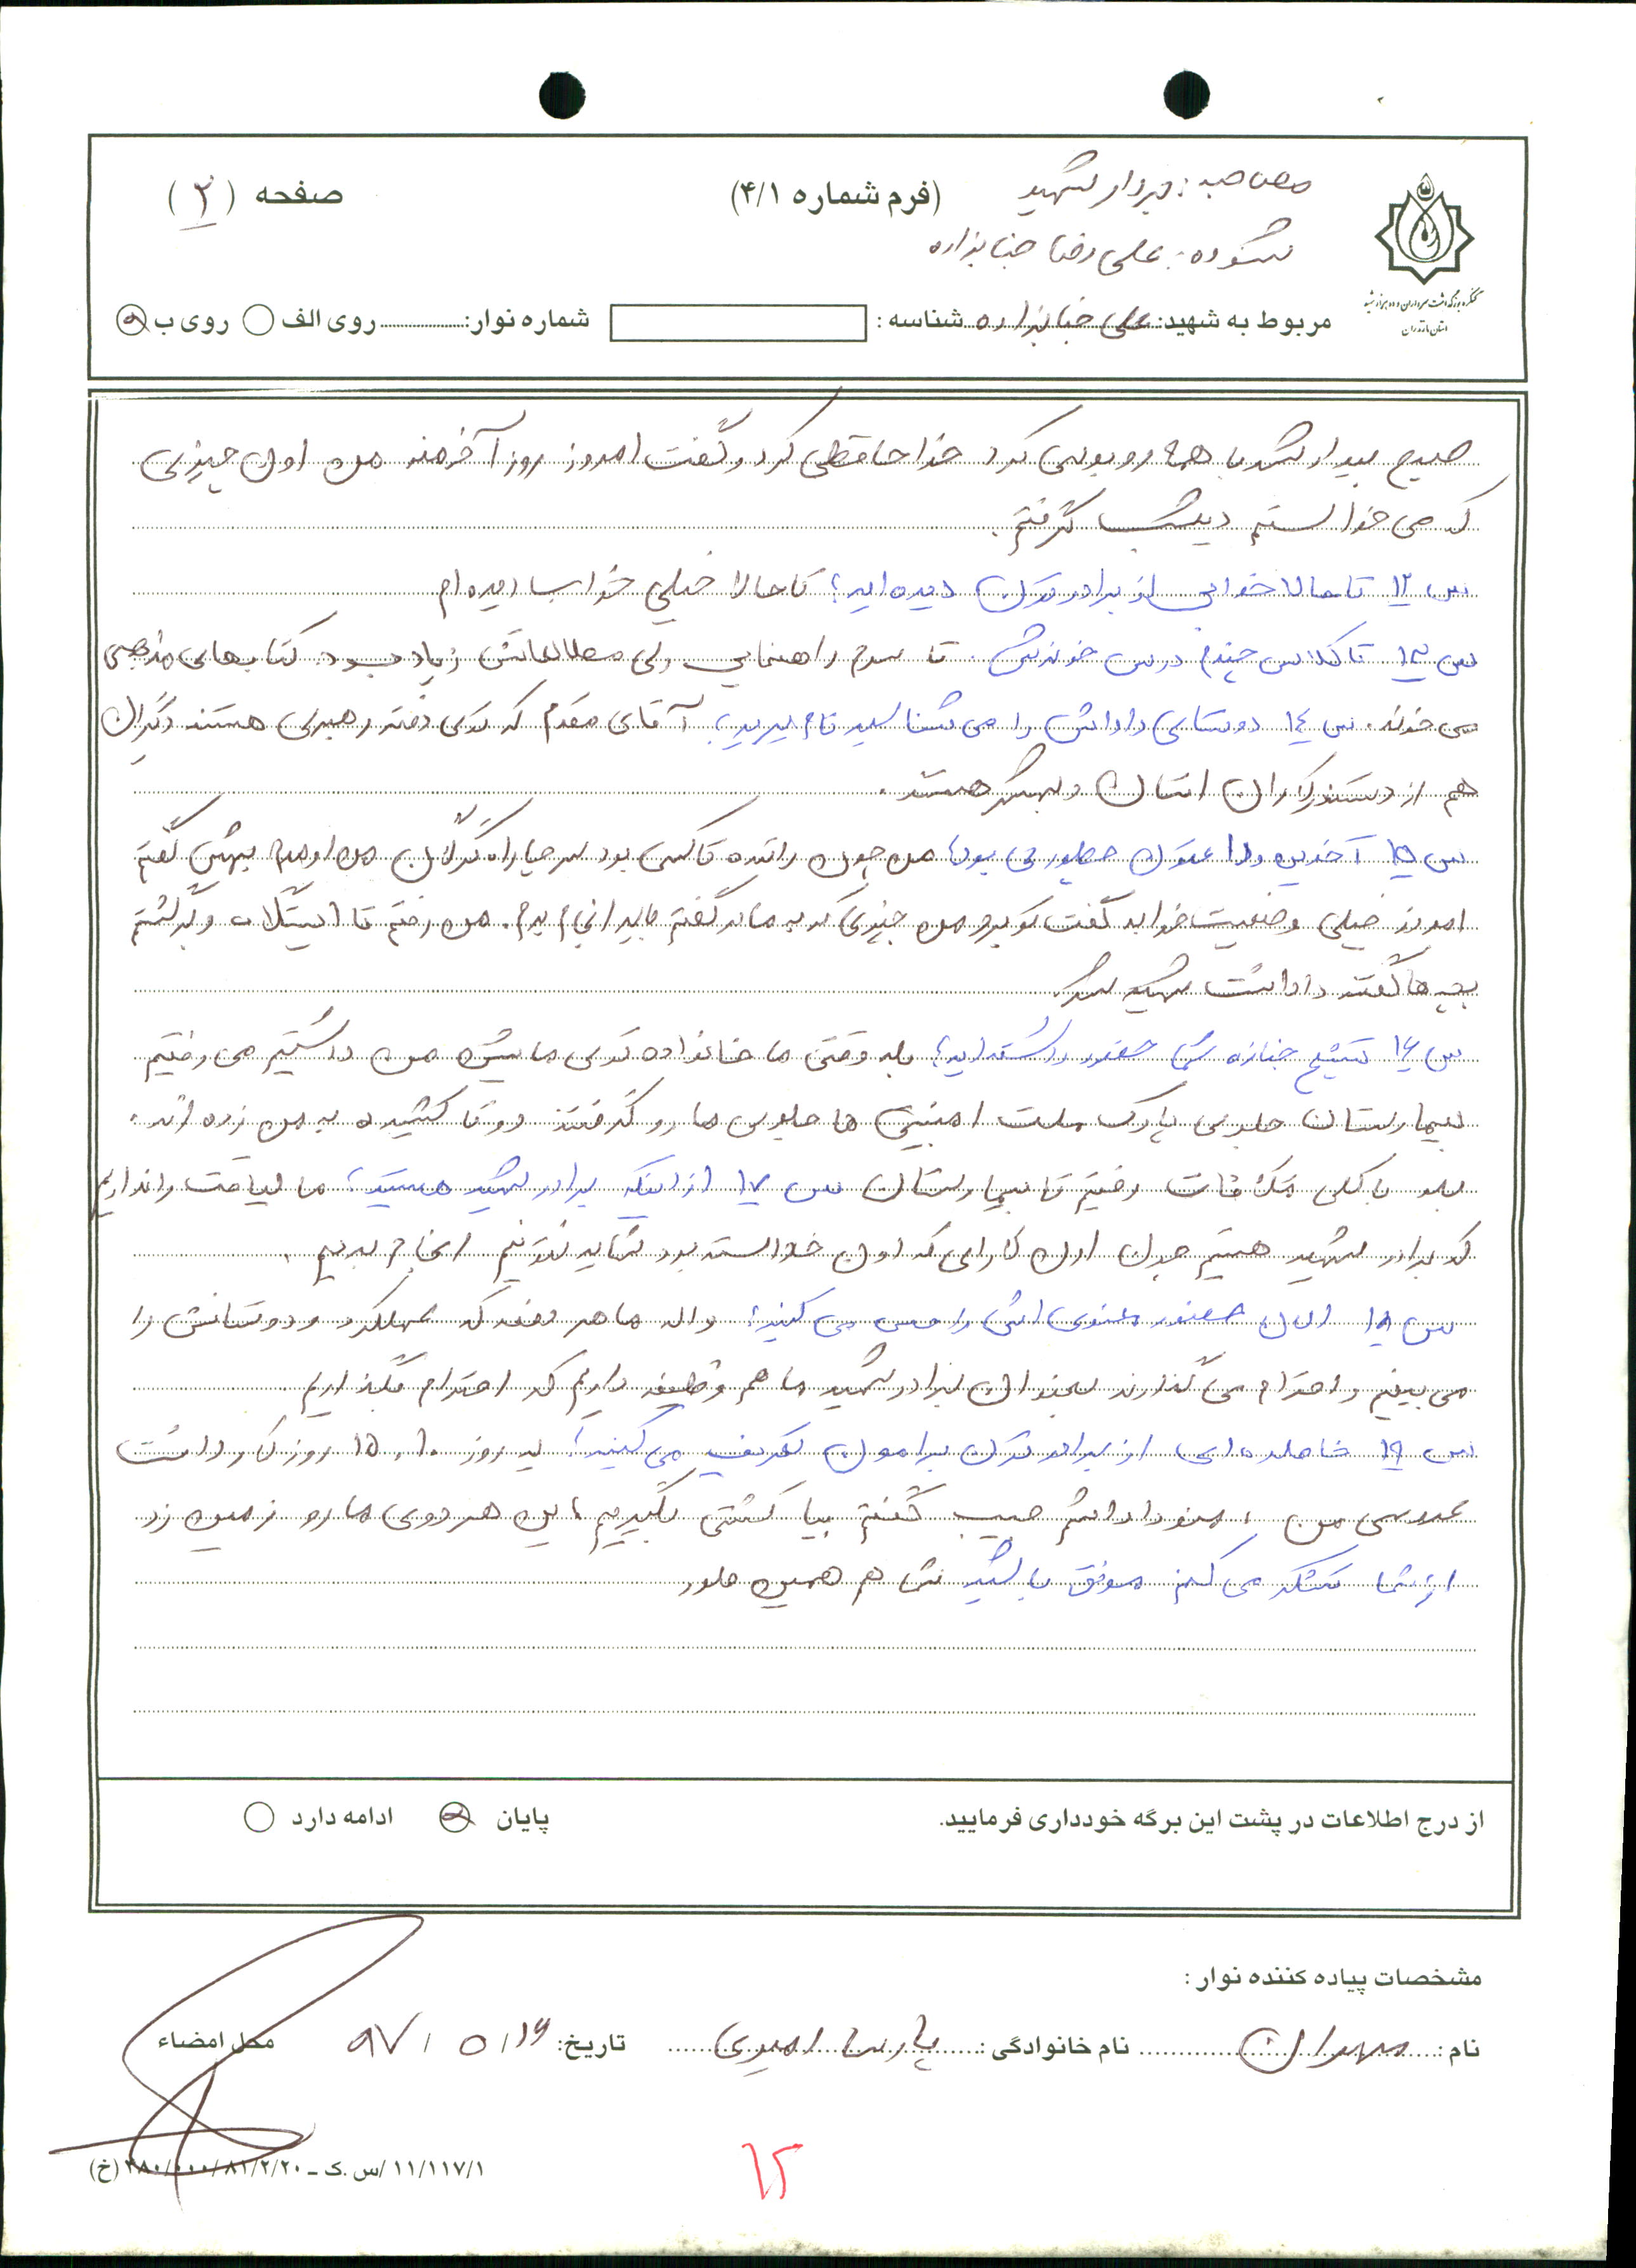 مصاحبه: برادر شهید
(فرم شماره ۴/۱)
صفحه (۳)
شنونده: علی رضا خبازاده
کنگره بزرگداشت سرداران و ده هزار شهید
استان مازندران
مربوط به شهید: علی خبازاده شناسه : شماره نوار: روی الف روی ب
صبح بیدار شد با همه روبوسی کرد خداحافظی کرد و گفت امروز روز آخر منه من اون چیزی
که می خواستم دیشب گرفتم.
س ۱۲ تا حالا خوابی از برادرتون دیده اید؟ تا حالا خیلی خواب دیده ام
س ۱۳ تا کلاس چندم درس خوندش. تا سوم راهنمایی ولی مطالعاتش زیاد بود. کتابهای مذهبی
می خوند. س ۱۴ دوستای داداش را می شناسید نام ببرید؟ آقای مقدم که توی دفتر رهبری هستند دیگران
هم از دستندرکاران استان و بهشهر هستند.
س ۱۵ آخرین وداعتون چطوری بود؟ من چون راننده تاکسی بود سر چهارراه گرگان من اومدم بهش گفتم
امروز خیلی وضعیت خرابه گفت تو برو من چیزی که به مادر گفتم باید انجام بدم. من رفتم تا ایستگاه و برگشتم
بچه ها گفتند داداشت شهید شد
س ۱۶ تشیع جنازه شما حضور داشته اید؟ بله وقتی ما خانواده توی ماشین من داشتیم می رفتیم
بیمارستان جلوی پارک ملت امنیتی ها جلوی ما رو گرفتند دو تا کشیده به من زده اند.
بعد با کلی مکافات رفتیم تا بیمارستان س ۱۷ از اینکه برادر شهید هستید؟ ما لیاقت را نداریم
که برادر شهید هستیم چون اون کارای که اون خواسته بود شاید نتونیم انجام بدیم.
س ۱۸ الان حضور معنوی اش را حس می کنید؟ والا ما هر دفعه که عملکرد و دوستانش را
می بینیم و احترام می گذارند بعنوان برادر شهید ما هم وظیفه داریم که احترام بگذاریم
س ۱۹ خاطره ای از برادرتون برامون تعریف می کنید؟ یه روز ۱۰، ۱۵ روز کار داشت
عروسی من، منو داداشم حبیب گفتم بیا کشتی بگیریم، این هر دوی ما رو زمین زد
از شما تشکر می کنم موفق باشید شما هم همین طور
از درج اطلاعات در پشت این برگه خودداری فرمایید.
پایان ادامه دارد
مشخصات پیاده کننده نوار :
نام : مهران نام خانوادگی : پارسا امیری تاریخ: ۹۷/۵/۱۶ محل امضاء
۱۱/۱۱۷/۱ /س.ک – ۳۸۰/۰۰۰/۸۱/۲/۲۰ (خ)
۱۲